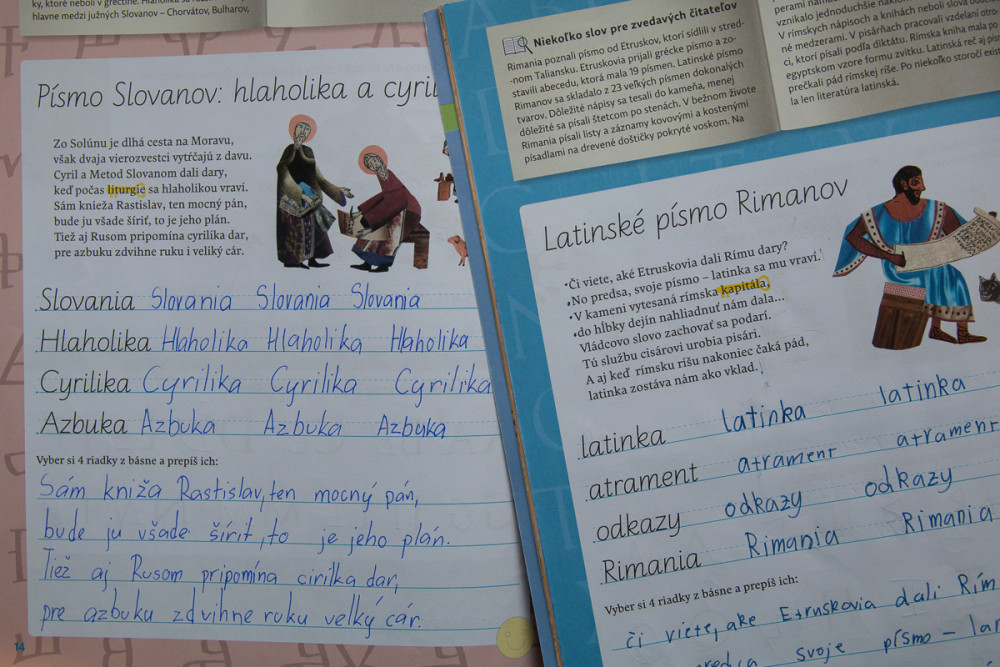 ky, ktoré neboli v gréčtine.
hlavne medzi južných Slovanov – Chorvátov, Bulharov,
Písmo Slovanov: hlaholika a cyril
Zo Solúnu je dlhá cesta na Moravu,
však dvaja vierozvestci vytŕčajú z davu.
Cyril a Metod Slovanom dali dary,
keď počas liturgie sa hlaholikou vraví.
Sám knieža Rastislav, ten mocný pán,
bude ju všade šíriť, to je jeho plán.
Tiež aj Rusom pripomína cyrilika dar,
pre azbuku zdvihne ruku i veliký cár.
Slovania Slovania Slovania Slovania
Hlaholika Hlaholika Hlaholika Hlaholika
Cyrilika Cyrilika Cyrilika Cyrilika
Azbuka Azbuka Azbuka Azbuka
Vyber si 4 riadky z básne a prepíš ich:
Sám kniža Rastislav, ten mocný pán,
bude ju všade šíriť, to je jeho plán.
Tiež aj Rusom pripomína cirilka dar,
pre azbuku zdvihne ruku velký cár.
14
Niekoľko slov pre zvedavých čitateľov
Rimania poznali písmo od Etruskov, ktorí sídlili v stred-
-nom Taliansku. Etruskovia prijali grécke písmo a zo-
stavili abecedu, ktorá mala 19 písmen. Latinské písmo
Rimanov sa skladalo z 23 veľkých písmen dokonalých
tvarov. Dôležité nápisy sa tesali do kameňa, menej
dôležité sa písali štetcom po stenách. V bežnom živote
Rimania písali listy a záznamy kovovými a kostenými
písadlami na drevené doštičky pokryté voskom. Na
vznikalo jednoduchšie
V rímskych nápisoch a knihách neboli slová
né medzerami. V pisárňach pracovali vzdelaní otro-
ci, ktorí písali podľa diktátu. Rímska kniha mala po
egyptskom vzore formu zvitku. Latinská reč aj
prečkali pád rímskej ríše. Po niekoľko storočí
la len literatúra latinská.
Latinské písmo Rimanov
Či viete, aké Etruskovia dali Rímu dary?
No predsa, svoje písmo – latinka sa mu vraví.
V kameni vytesaná rímska kapitála,
do hĺbky dejín nahliadnuť nám dala...
Vládcovo slovo zachovať sa podarí.
Tú službu cisárovi urobia pisári.
A aj keď rímsku ríšu nakoniec čaká pád,
latinka zostáva nám ako vklad.
latinka latinka latinka
atrament atrament atrament
odkazy odkazy odkazy
Rimania Rimania Rimania
Vyber si 4 riadky z básne a prepíš ich:
či viete, ake Etruskovia dali Rím
svoje písmo – lat